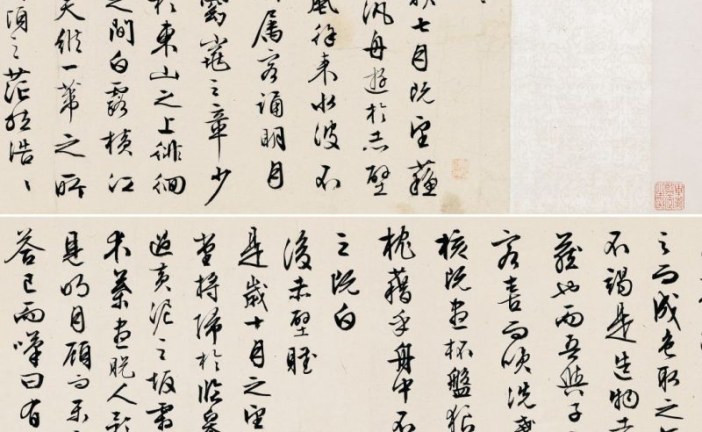 秋七月既望蘇
汎舟遊於赤壁
風徐来水波不
属客誦明月
窕之章少
於東山之上徘徊
之間白露横江
天縱一葦之所
頃之茫然浩々
之而成色取之
不竭是造物者
藏也而吾與子
客喜而笑洗盞
核既盡杯盤狼
枕藉乎舟中不
之既白
後赤壁賦
是歲十月之望
堂將歸於臨皋
過黄泥之坂霜
木葉盡脫人影
見明月顧而樂
答已而嘆曰有